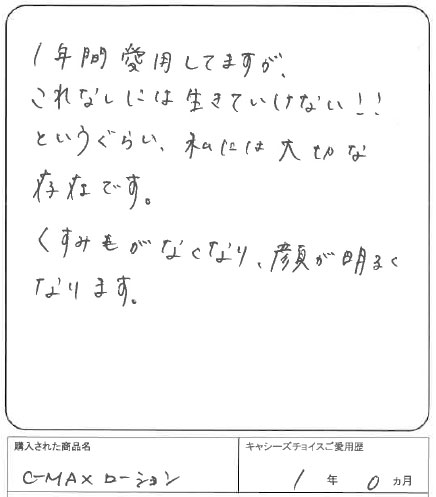 1年間愛用してますが、
これなしには生きていけない!!
というぐらい、私には大切な
存在です。
くすみもがなくなり、顔が明るく
なります。
購入された商品名
キャシーズチョイスご愛用歴
C-MAXローション
1 年 0 ヵ月